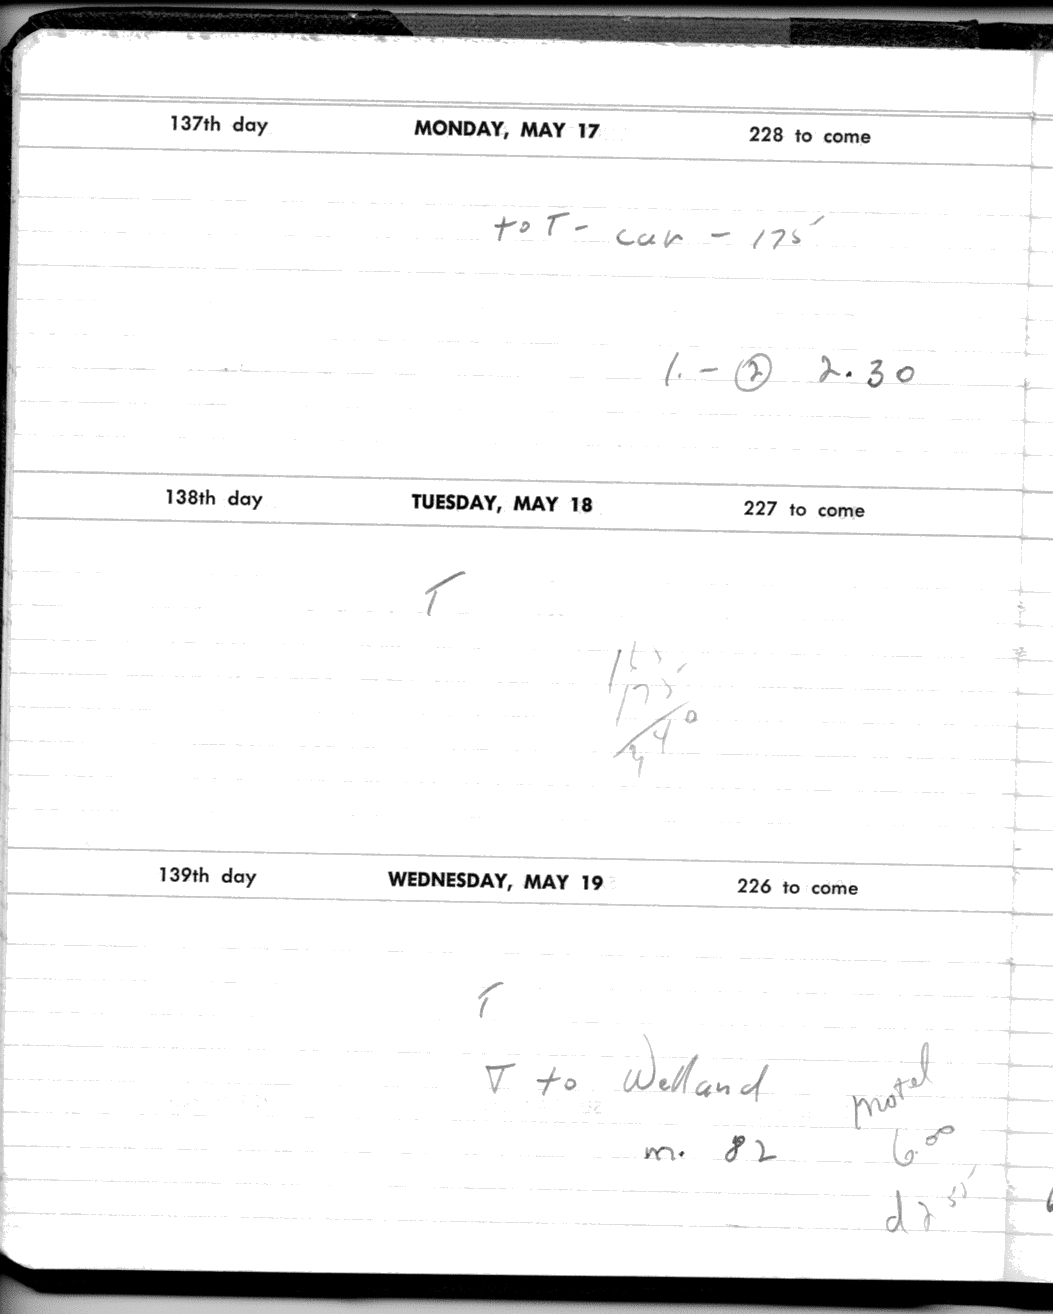 137th day MONDAY, MAY 17 228 to come
to T - car - 175
1. - ② 2.30
138th day TUESDAY, MAY 18 227 to come
T
175
240
139th day WEDNESDAY, MAY 19 226 to come
T
T to Welland
motel
m. 82 6.00
d 2 55